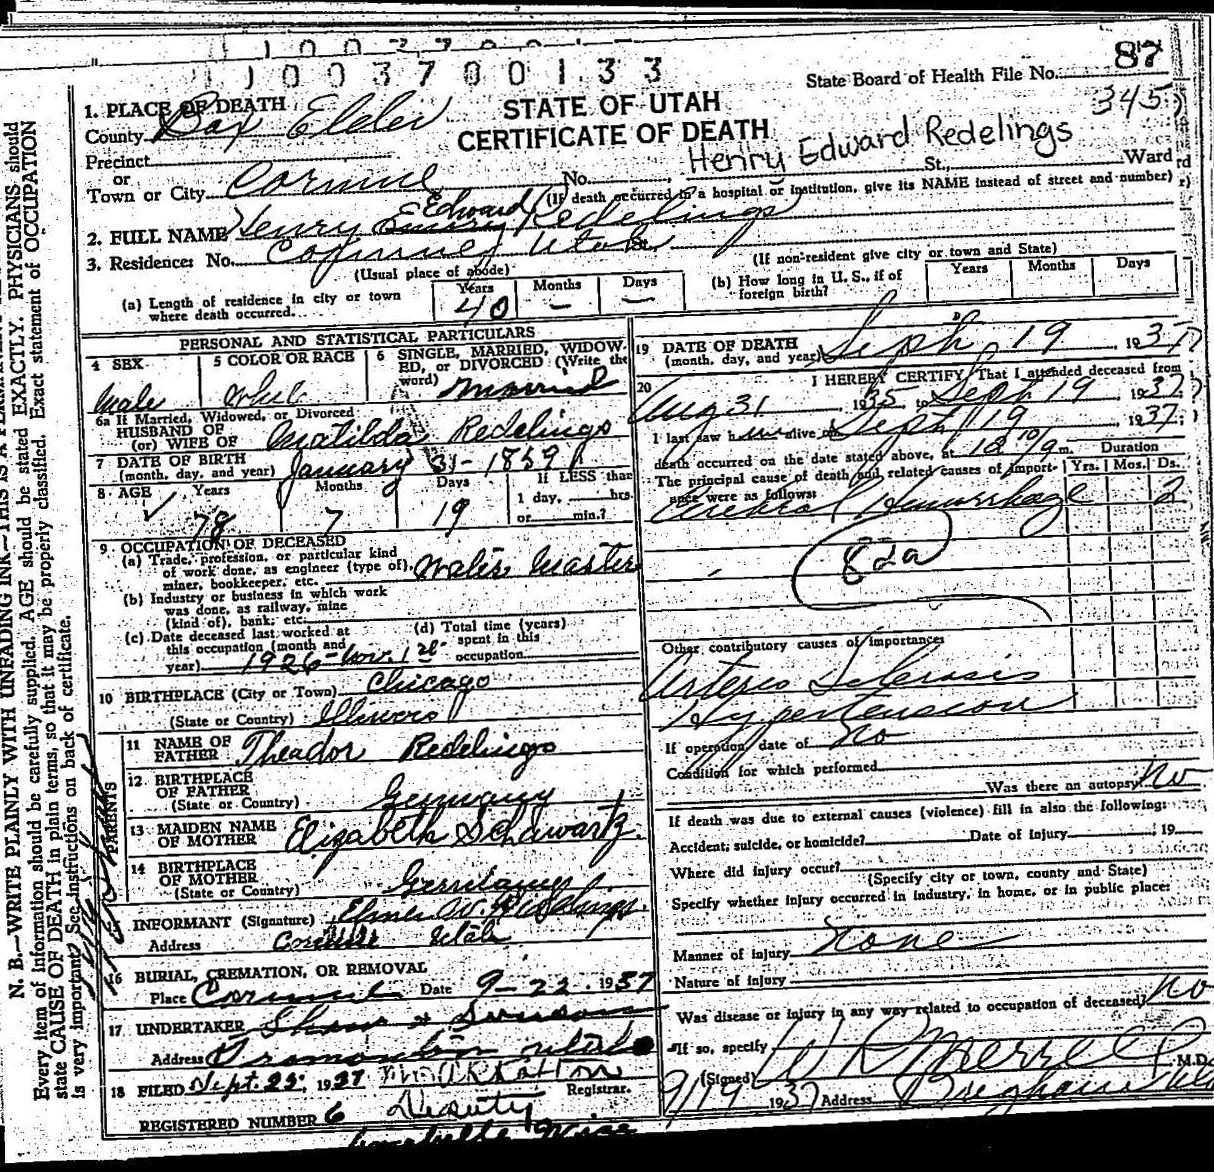 1003700133
State Board of Health File No. 87
345
1. PLACE OF DEATH
STATE OF UTAH
CERTIFICATE OF DEATH
County Box Elder
Henry Edward Redelings
Precinct
or
Town or City Corinne No. St., Ward
(If death occurred in a hospital or institution, give its NAME instead of street and number)
Edward
2. FULL NAME Henry Emery Redelings
3. Residence: No. Corinne, Utah
(Usual place of abode) (If non-resident give city or town and State)
(a) Length of residence in city or town where death occurred. Years 40 Months — Days —
(b) How long in U. S., if of foreign birth? Years Months Days
PERSONAL AND STATISTICAL PARTICULARS
4 SEX Male
5 COLOR OR RACE White
6 SINGLE, MARRIED, WIDOWED, or DIVORCED (Write the word) Married
6a If Married, Widowed, or Divorced
HUSBAND OF
(or) WIFE OF Matilda Redelings
7 DATE OF BIRTH
(month, day, and year) January 31-1859
8 AGE Years 78 Months 7 Days 19
If LESS than
1 day, hrs.
or min.?
9 OCCUPATION OF DECEASED
(a) Trade, profession, or particular kind
of work done, as engineer (type of),
miner, bookkeeper, etc. Water Master
(b) Industry or business in which work
was done, as railway, mine
(kind of), bank, etc.
(c) Date deceased last worked at
this occupation (month and
year) 1926-Nov. 1st
(d) Total time (years)
spent in this
occupation
10 BIRTHPLACE (City or Town) Chicago
(State or Country) Illinois
PARENTS
11 NAME OF
FATHER Theador Redelings
12 BIRTHPLACE
OF FATHER
(State or Country) Germany
13 MAIDEN NAME
OF MOTHER Elizabeth Schwartz
14 BIRTHPLACE
OF MOTHER
(State or Country) Germany
15 INFORMANT (Signature) Elmer W. Redelings
Address Corinne Utah
16 BURIAL, CREMATION, OR REMOVAL
Place Corinne Date 9-22, 1937
17 UNDERTAKER
Address Tremonton Utah
18 FILED Sept. 22, 1937
Registrar.
REGISTERED NUMBER 6 Deputy
19 DATE OF DEATH
(month, day, and year) Sept 19 1937
20 I HEREBY CERTIFY, That I attended deceased from
Aug 31 1935, to Sept 19 1937
I last saw him alive on Sept 19 1937
death occurred on the date stated above, at 12 10/a m.
Duration
The principal cause of death and related causes of importance were as follows: Yrs. Mos. Ds.
Cerebral Hemorrhage 2
82a
Other contributory causes of importance:
Arterio Sclerosis
Hypertension
If operation, date of no
Condition for which performed
Was there an autopsy? No
If death was due to external causes (violence) fill in also the following:
Accident, suicide, or homicide? Date of injury 19
Where did injury occur?
(Specify city or town, county and State)
Specify whether injury occurred in industry, in home, or in public place:
Manner of injury None
Nature of injury
Was disease or injury in any way related to occupation of deceased? No
If so, specify
(Signed) W R Merrell M.D.
9/19 1937 Address Brigham Utah
N. B.—WRITE PLAINLY WITH UNFADING INK—THIS IS A PERMANENT
Every item of information should be carefully supplied. AGE should be stated EXACTLY. PHYSICIANS should
state CAUSE OF DEATH in plain terms, so that it may be properly classified. Exact statement of OCCUPATION
is very important. See instructions on back of certificate.